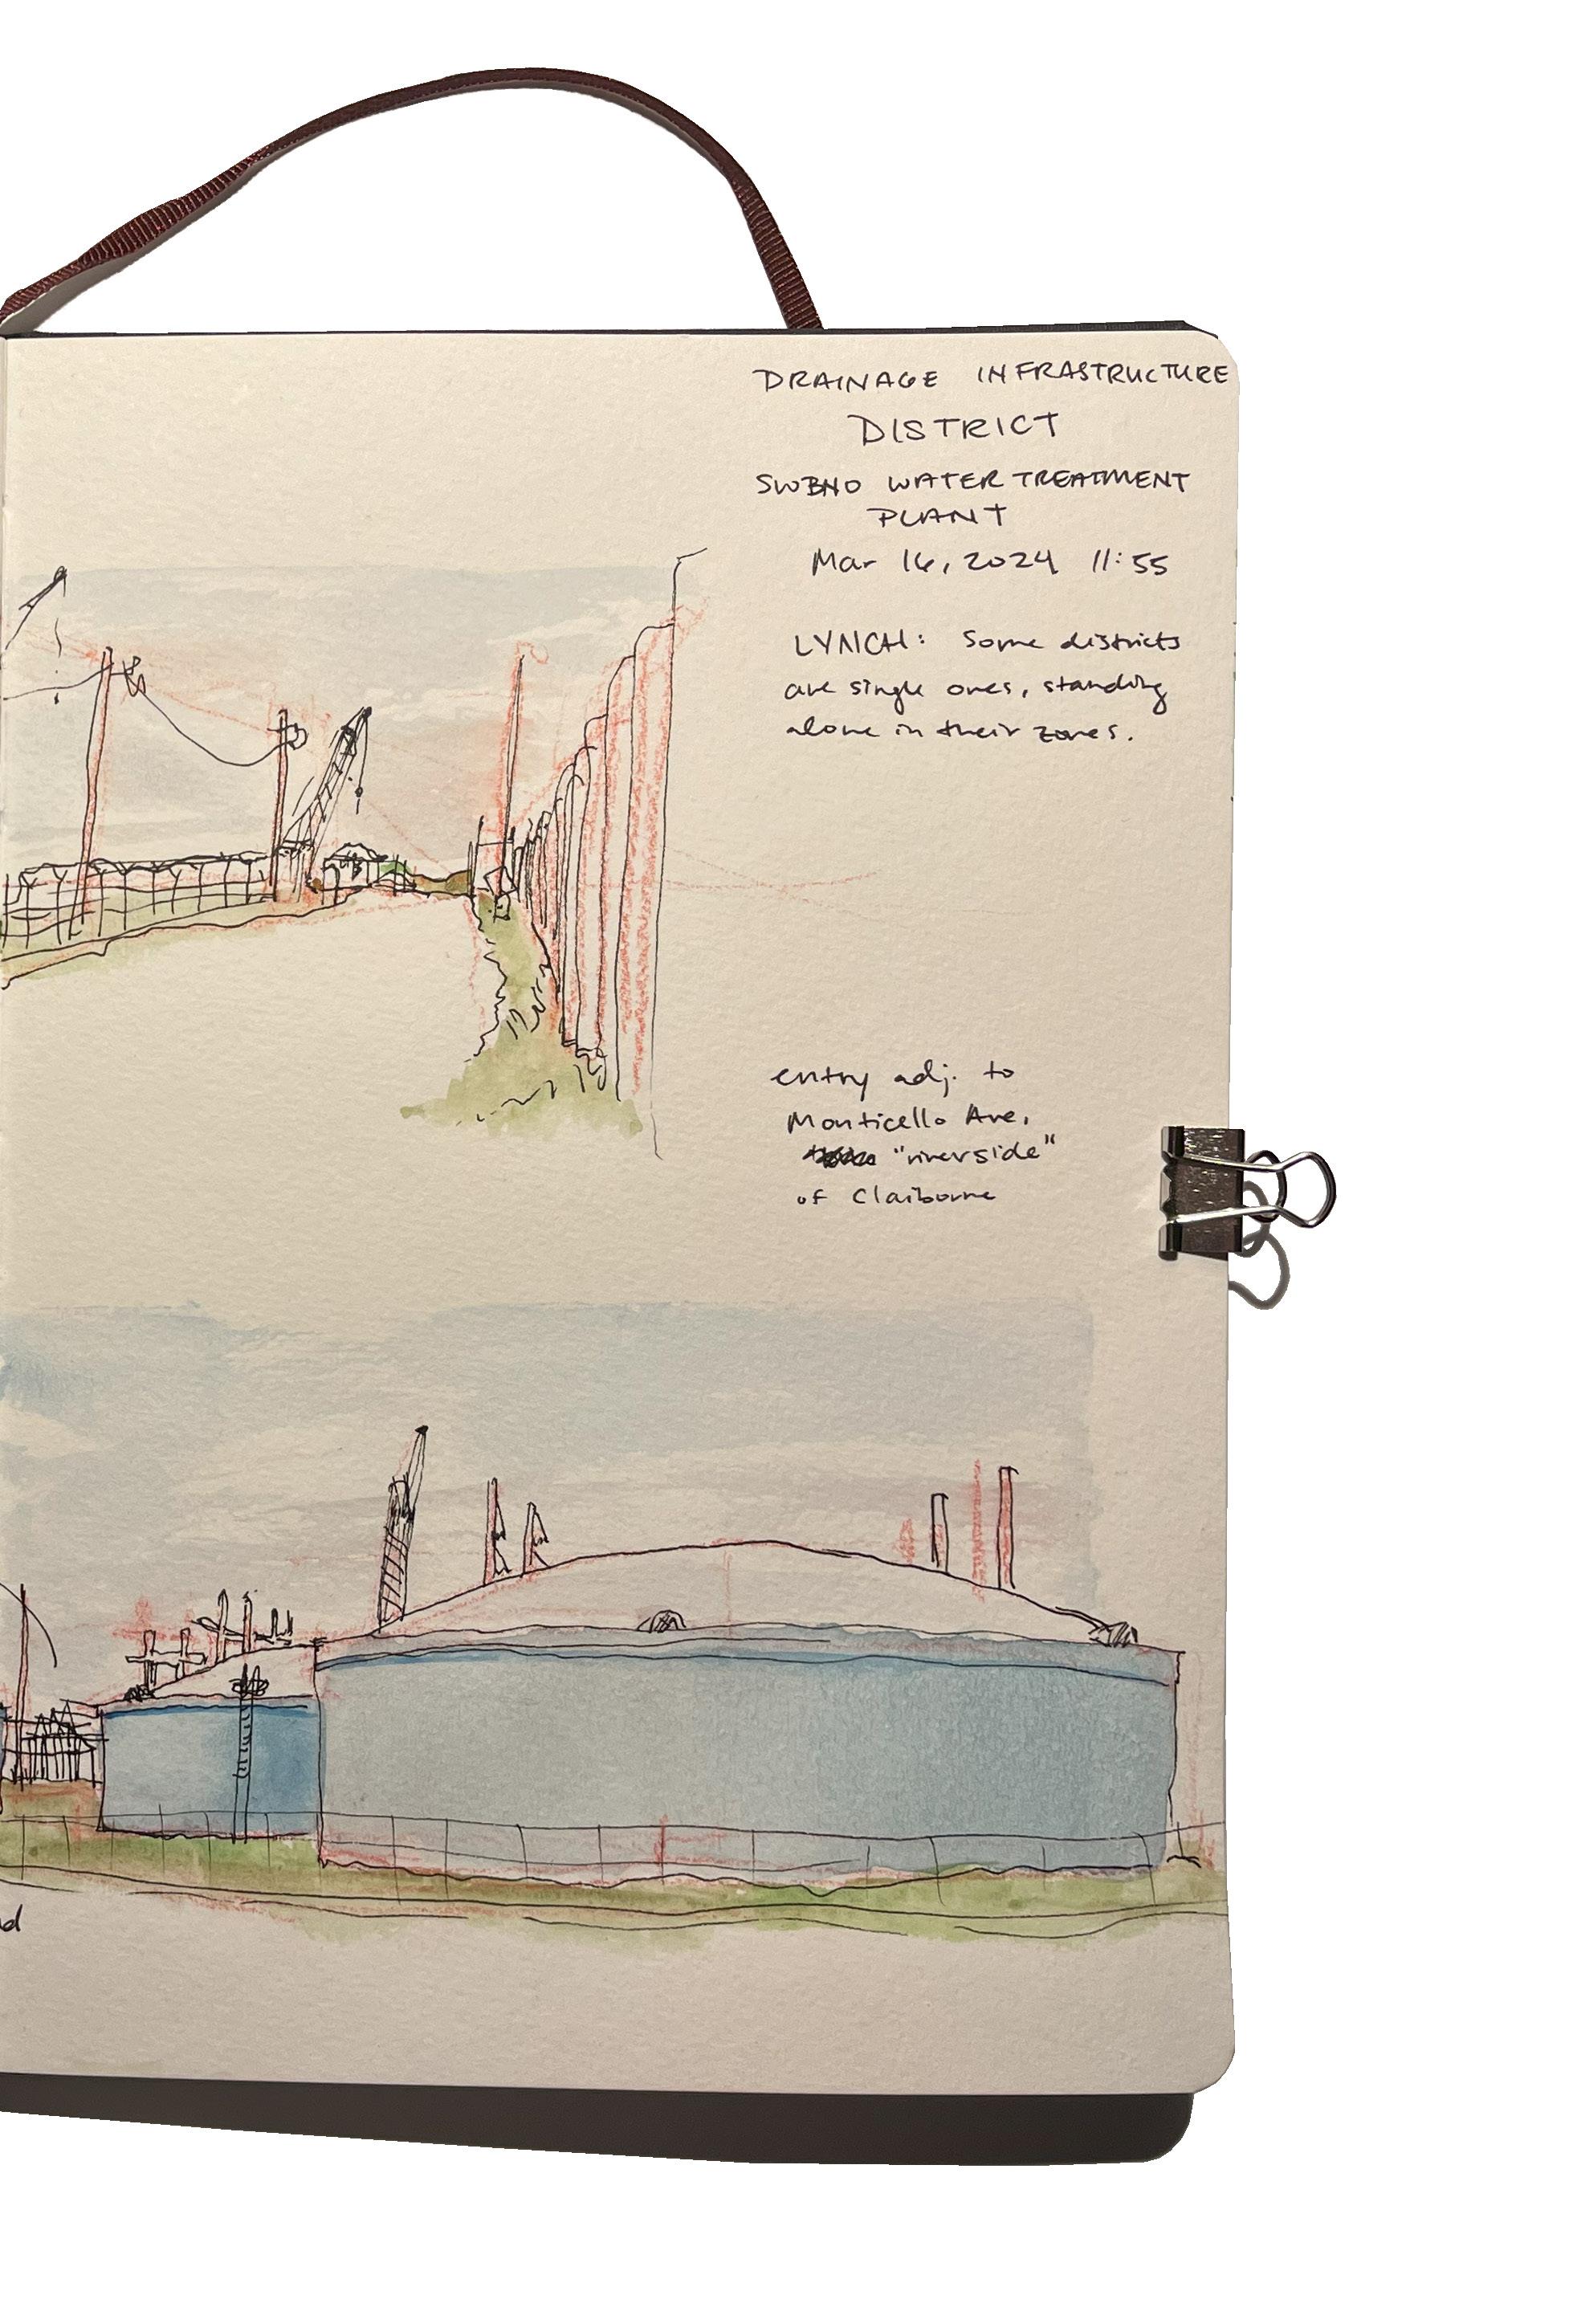 DRAINAGE INFRASTRUCTURE
DISTRICT
SWBNO WATER TREATMENT
PLANT
Mar 16, 2024 11:55
LYNCH: Some districts
are single ones, standing
alone in their zones.
entry adj. to
Monticello Ave,
"riverside"
of Claiborne